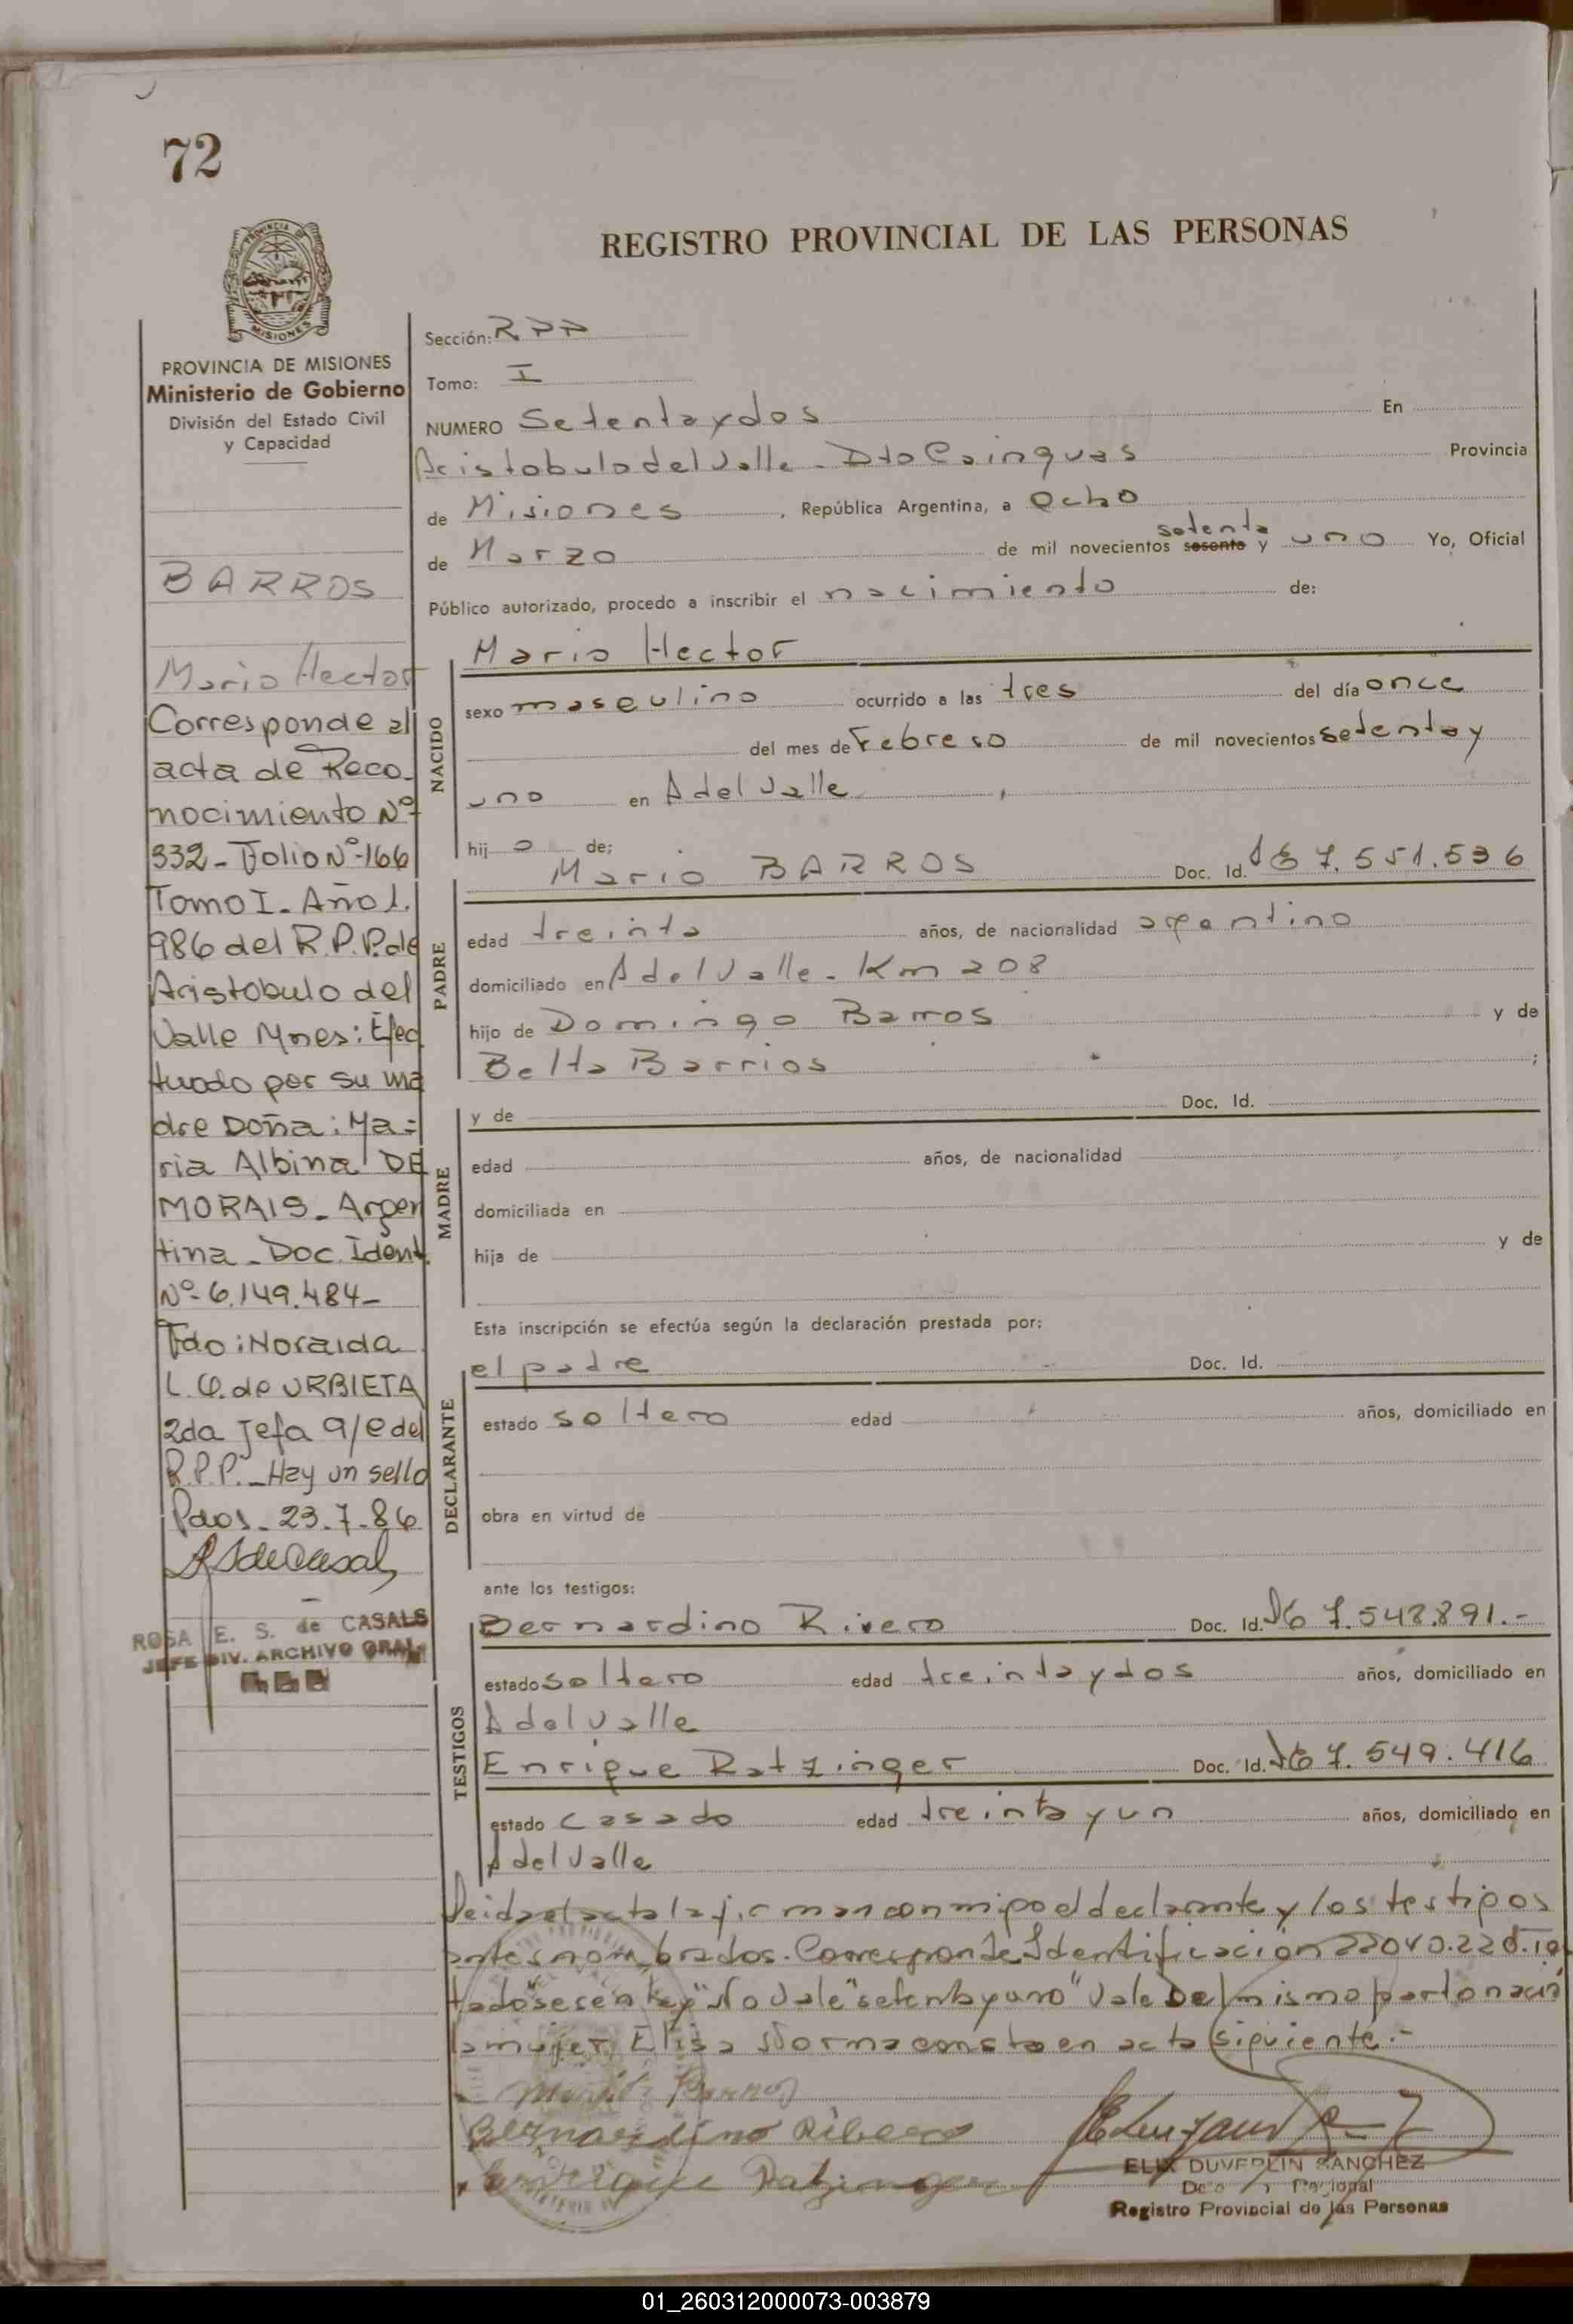 72
REGISTRO PROVINCIAL DE LAS PERSONAS
PROVINCIA DE MISIONES
MISIONES
PROVINCIA DE MISIONES
Ministerio de Gobierno
División del Estado Civil
y Capacidad
BARROS
Mario Hector
Corresponde al
acta de Reco-
nocimiento Nº-
332- Folio Nº-166
Tomo I- Año 1.
986 del R.P.P. de
Aristobulo del
Valle Mnes: Efec
tuado por su ma
dre Doña: Ma=
ria Albina DE
MORAIS- Argen
tina- Doc. Ident.
Nº- 6.149.484-
Fdo: Noraida
L. Q. de URBIETA
2da Jefa a/e del
R.P.P.- Hay un sello
Pdas- 23-7-86
ROSA E. S. de CASALS
JEFE DIV. ARCHIVO GRAL
Sección: RPP
Tomo: I
NUMERO Setenta y dos En
Aristobulo del Valle - Dto Cainguas Provincia
de Misiones, República Argentina, a Ocho
setenta
de Marzo de mil novecientos sesenta y uno Yo, Oficial
Público autorizado, procedo a inscribir el nacimiento de:
NACIDO
Mario Hector
sexo masculino ocurrido a las tres del día once
del mes de Febrero de mil novecientos setenta y
uno en A del Valle
hijo de;
PADRE
Mario BARROS Doc. Id. 7.551.536
edad treinta años, de nacionalidad argentino
domiciliado en A del Valle - Km 208
hijo de Domingo Barros y de
Belta Barrios ;
MADRE
y de Doc. Id.
edad años, de nacionalidad
domiciliada en
hija de y de
Esta inscripción se efectúa según la declaración prestada por:
DECLARANTE
el padre Doc. Id.
estado soltero edad años, domiciliado en
obra en virtud de
ante los testigos:
TESTIGOS
Bernardino Rivero Doc. Id. 7.548.891.-
estado soltero edad treinta y dos años, domiciliado en
A del Valle
Enrique Ratzinger Doc. Id. 7.549.416
estado casado edad treinta y un años, domiciliado en
A del Valle
Leida el acta la firman conmigo el declarante y los testigos
antes nombrados. Corresponde Identificación
tado "sesenta y" No Vale "setenta y uno" Vale Del mismo parto nació
la mujer, Elisa Norma consta en acta siguiente.-
Barros
Bernardino Ribero
Enrique Ratzinger
ELIX DUVERLIN SANCHEZ
Registro Provincial de las Personas
01_260312000073-003879